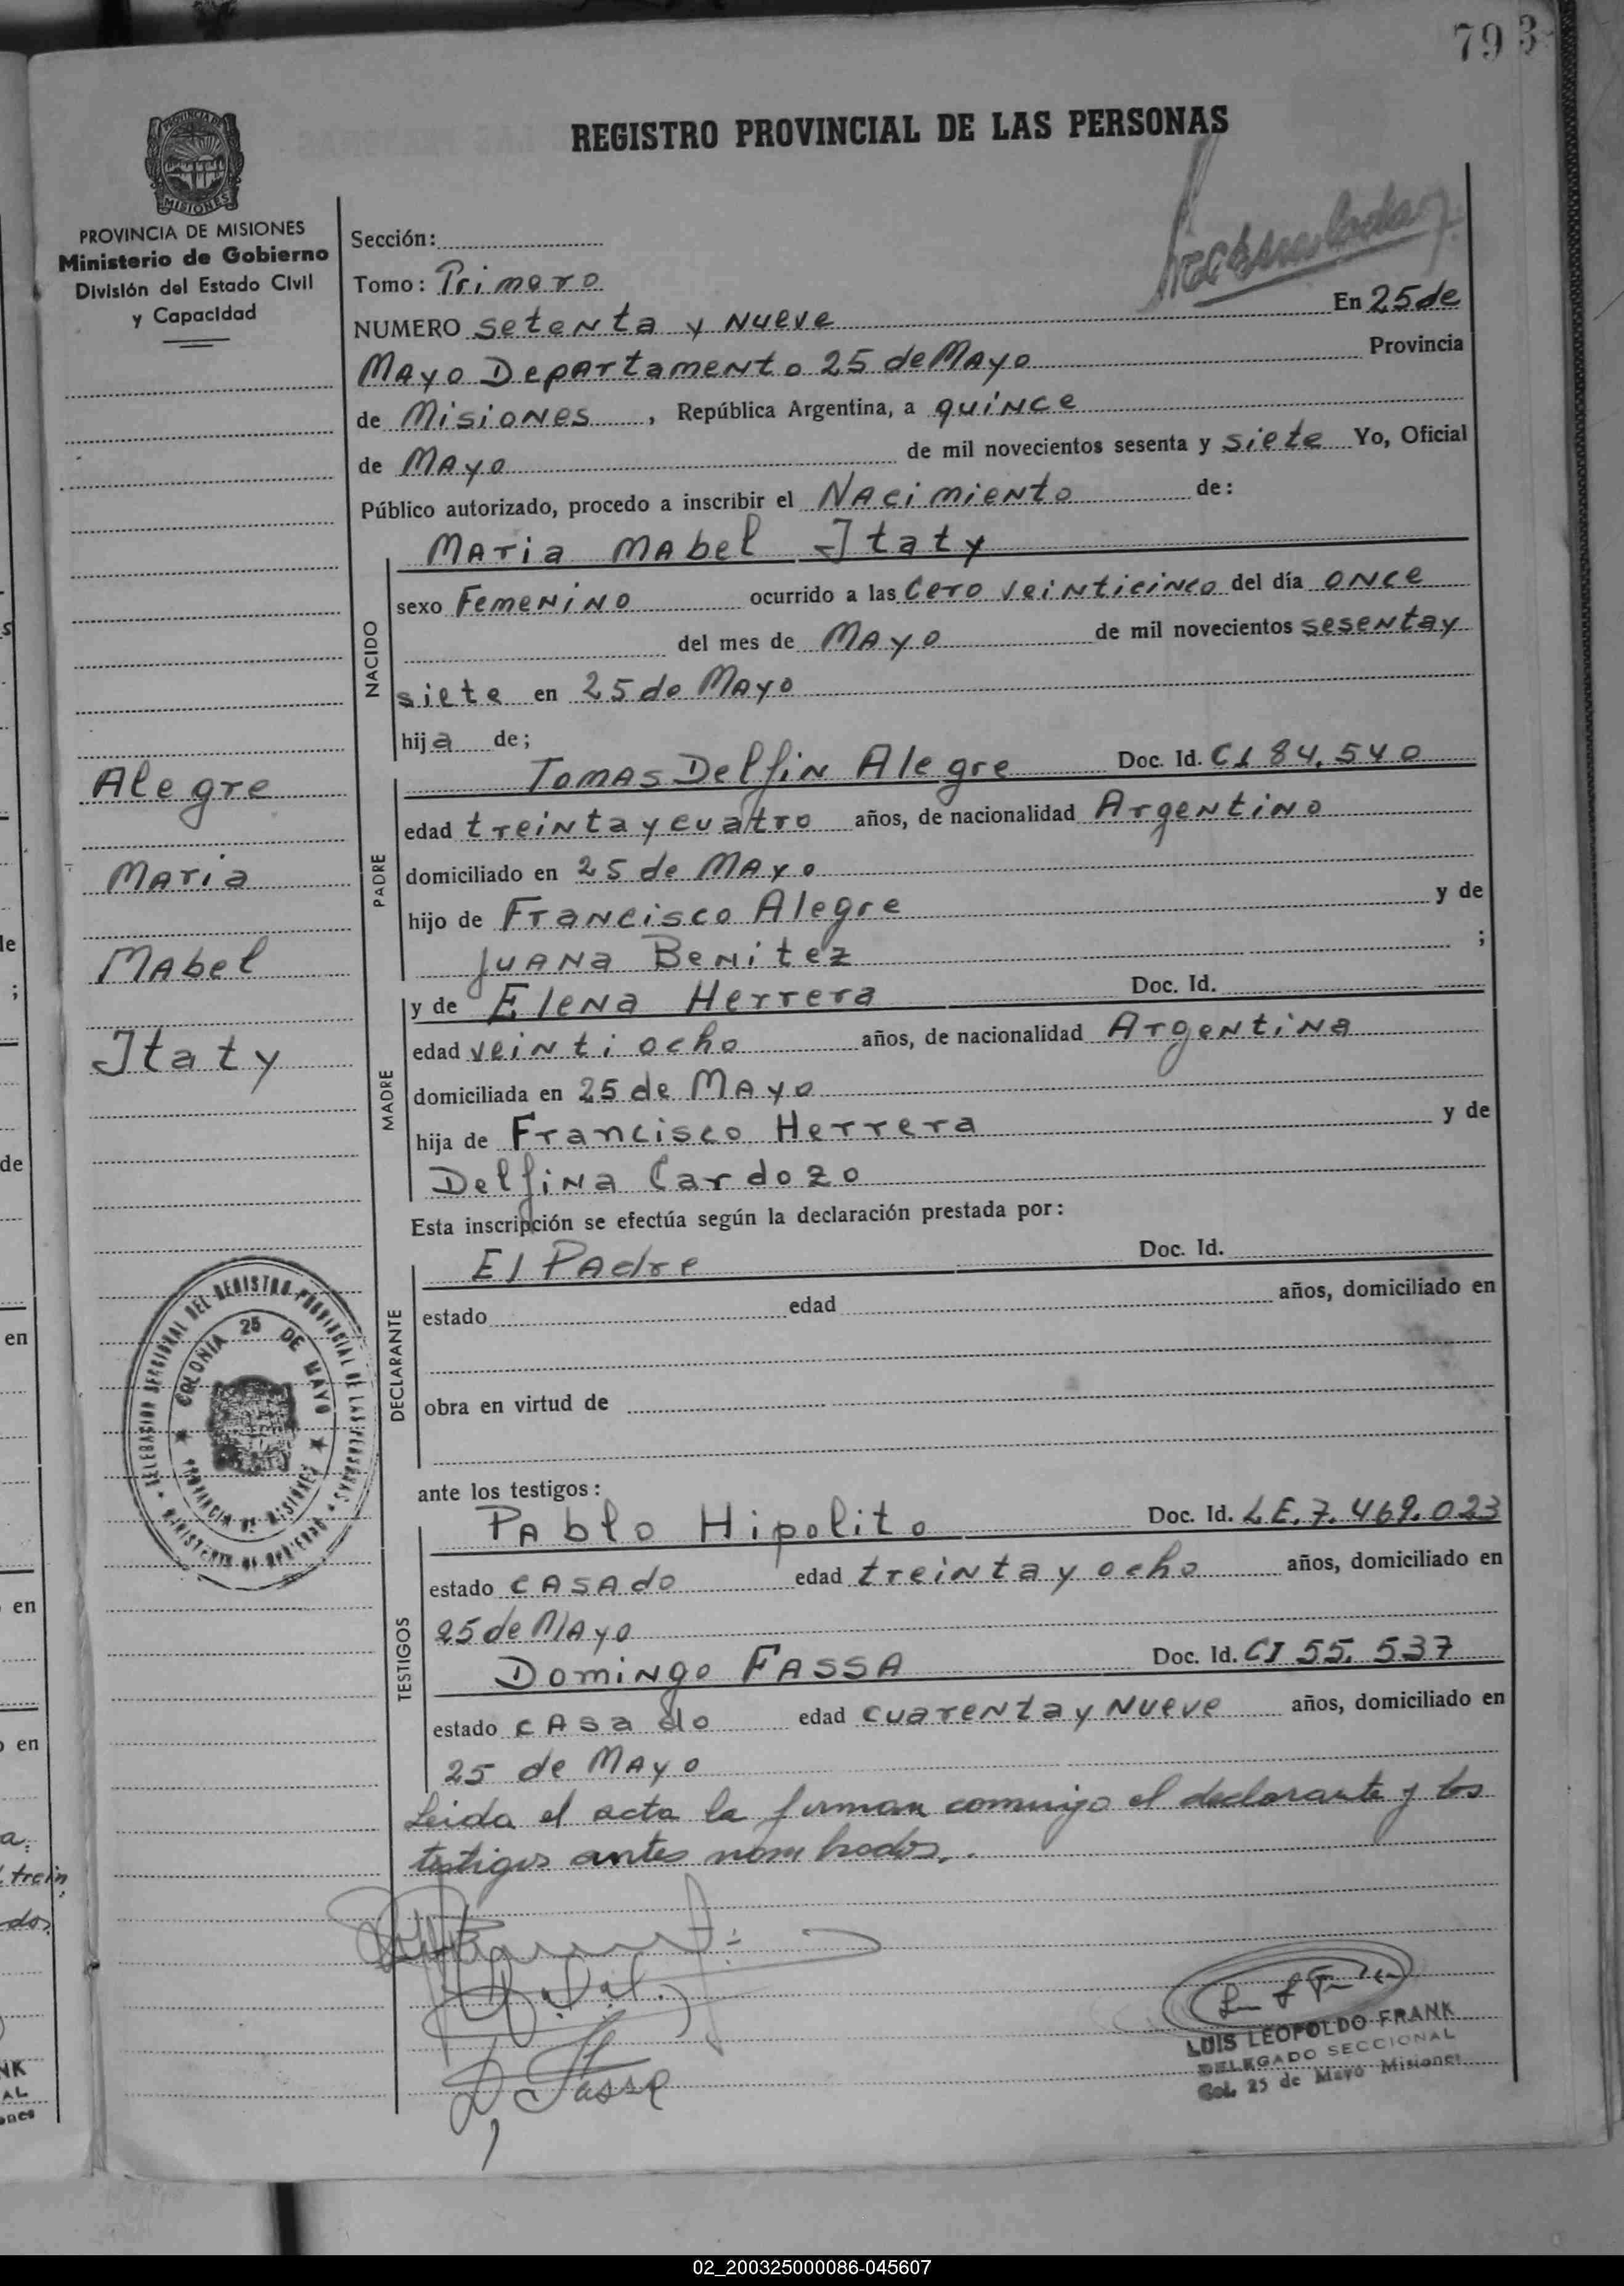 793
REGISTRO PROVINCIAL DE LAS PERSONAS
PROVINCIA DE MISIONES
Ministerio de Gobierno
División del Estado Civil
y Capacidad
Sección:
Tomo: Primero
NUMERO setenta y Nueve En 25 de
Mayo Departamento 25 de Mayo Provincia
de Misiones, República Argentina, a quince
de Mayo de mil novecientos sesenta y siete Yo, Oficial
Público autorizado, procedo a inscribir el Nacimiento de:
Maria Mabel Itaty
NACIDO
sexo Femenino ocurrido a las Cero veinticinco del día once
del mes de Mayo de mil novecientos sesenta y
siete en 25 de Mayo
hija de;
Alegre
Maria
Mabel
Itaty
PADRE
Tomas Delfin Alegre Doc. Id. CI 84.540
edad treinta y cuatro años, de nacionalidad Argentino
domiciliado en 25 de Mayo
hijo de Francisco Alegre y de
Juana Benitez ;
MADRE
y de Elena Herrera Doc. Id.
edad veinti ocho años, de nacionalidad Argentina
domiciliada en 25 de Mayo
hija de Francisco Herrera y de
Delfina Cardozo
Esta inscripción se efectúa según la declaración prestada por:
DECLARANTE
El Padre Doc. Id.
estado edad años, domiciliado en
obra en virtud de
DELEGACION SECCIONAL DEL REGISTRO PROVINCIAL DE LAS PERSONAS
MINISTERIO DE GOBIERNO
COLONIA 25 DE MAYO
PROVINCIA DE MISIONES
ante los testigos:
TESTIGOS
Pablo Hipolito Doc. Id. LE.7.469.023
estado casado edad treinta y ocho años, domiciliado en
25 de Mayo
Domingo Fassa Doc. Id. CI 55.537
estado casado edad cuarenta y Nueve años, domiciliado en
25 de Mayo
Leida el acta la firman conmigo el declarante y los
testigos antes nombrados.
D Fassa
LUIS LEOPOLDO FRANK
DELEGADO SECCIONAL
Col. 25 de Mayo Misiones
02_200325000086-045607